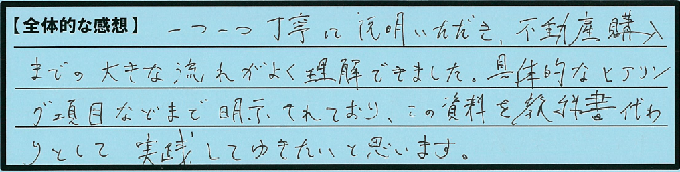 【全体的な感想】 一つ一つ丁寧に説明いただき、不動産購入
までの大きな流れがよく理解できました。具体的なヒアリン
グ項目などまで明示されており、この資料を教科書代わ
りとして実践してゆきたいと思います。